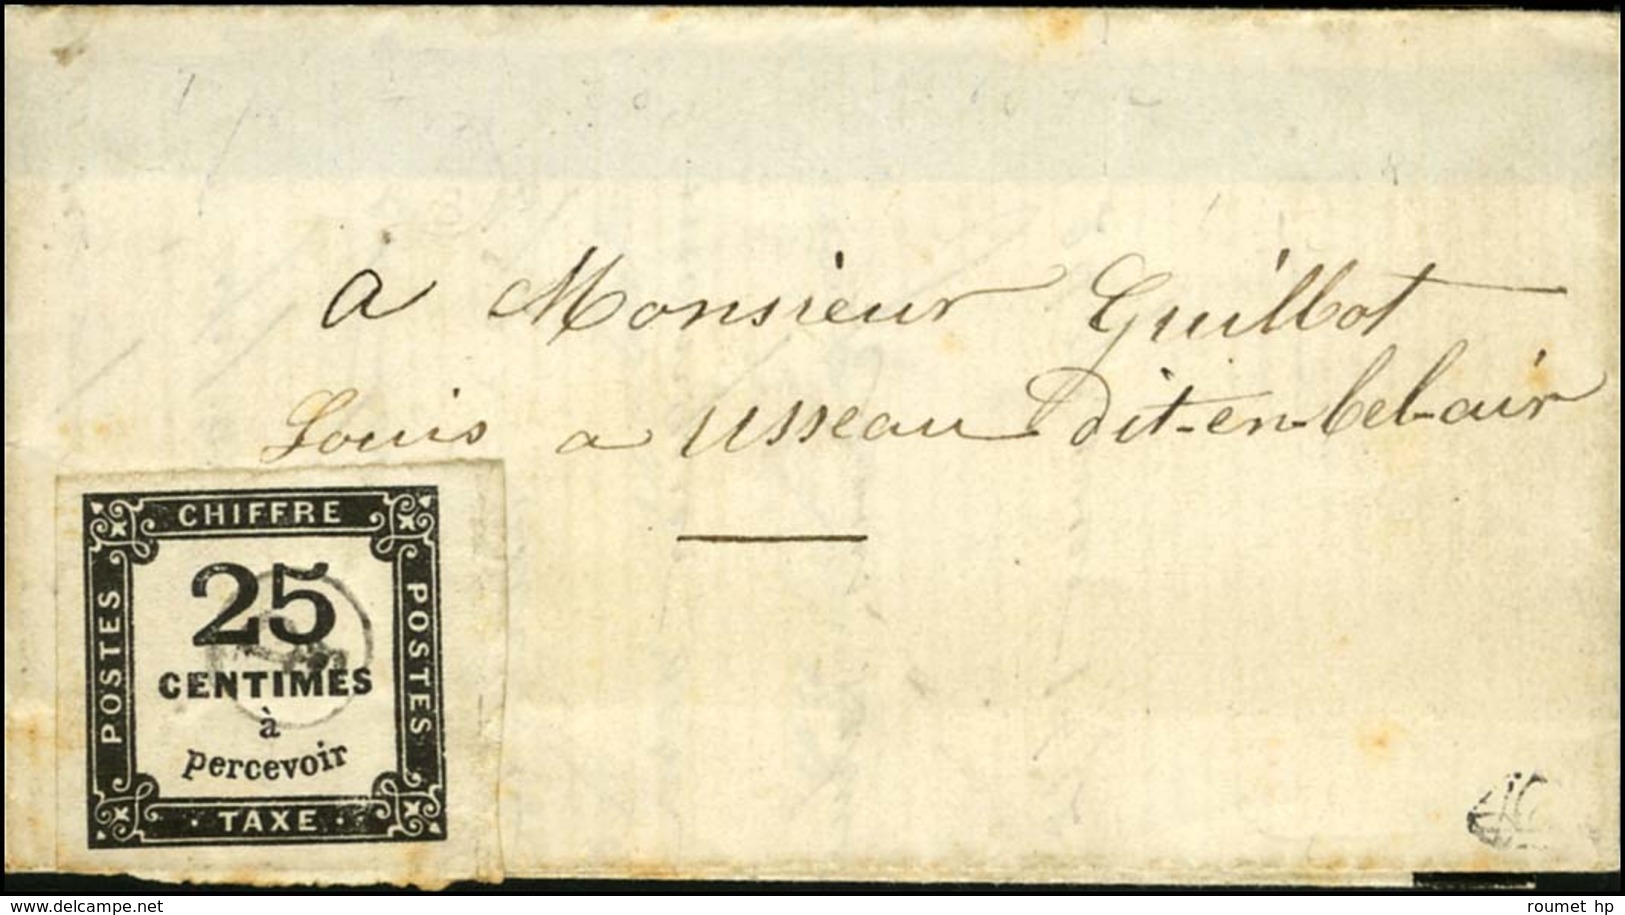 a Monsieur Guilbot
Louis a Usseau dit-en-bel-air
CHIFFRE
POSTES
25
CENTIMES
à
percevoir
POSTES
· TAXE ·
www.delcampe.net
roumet hp